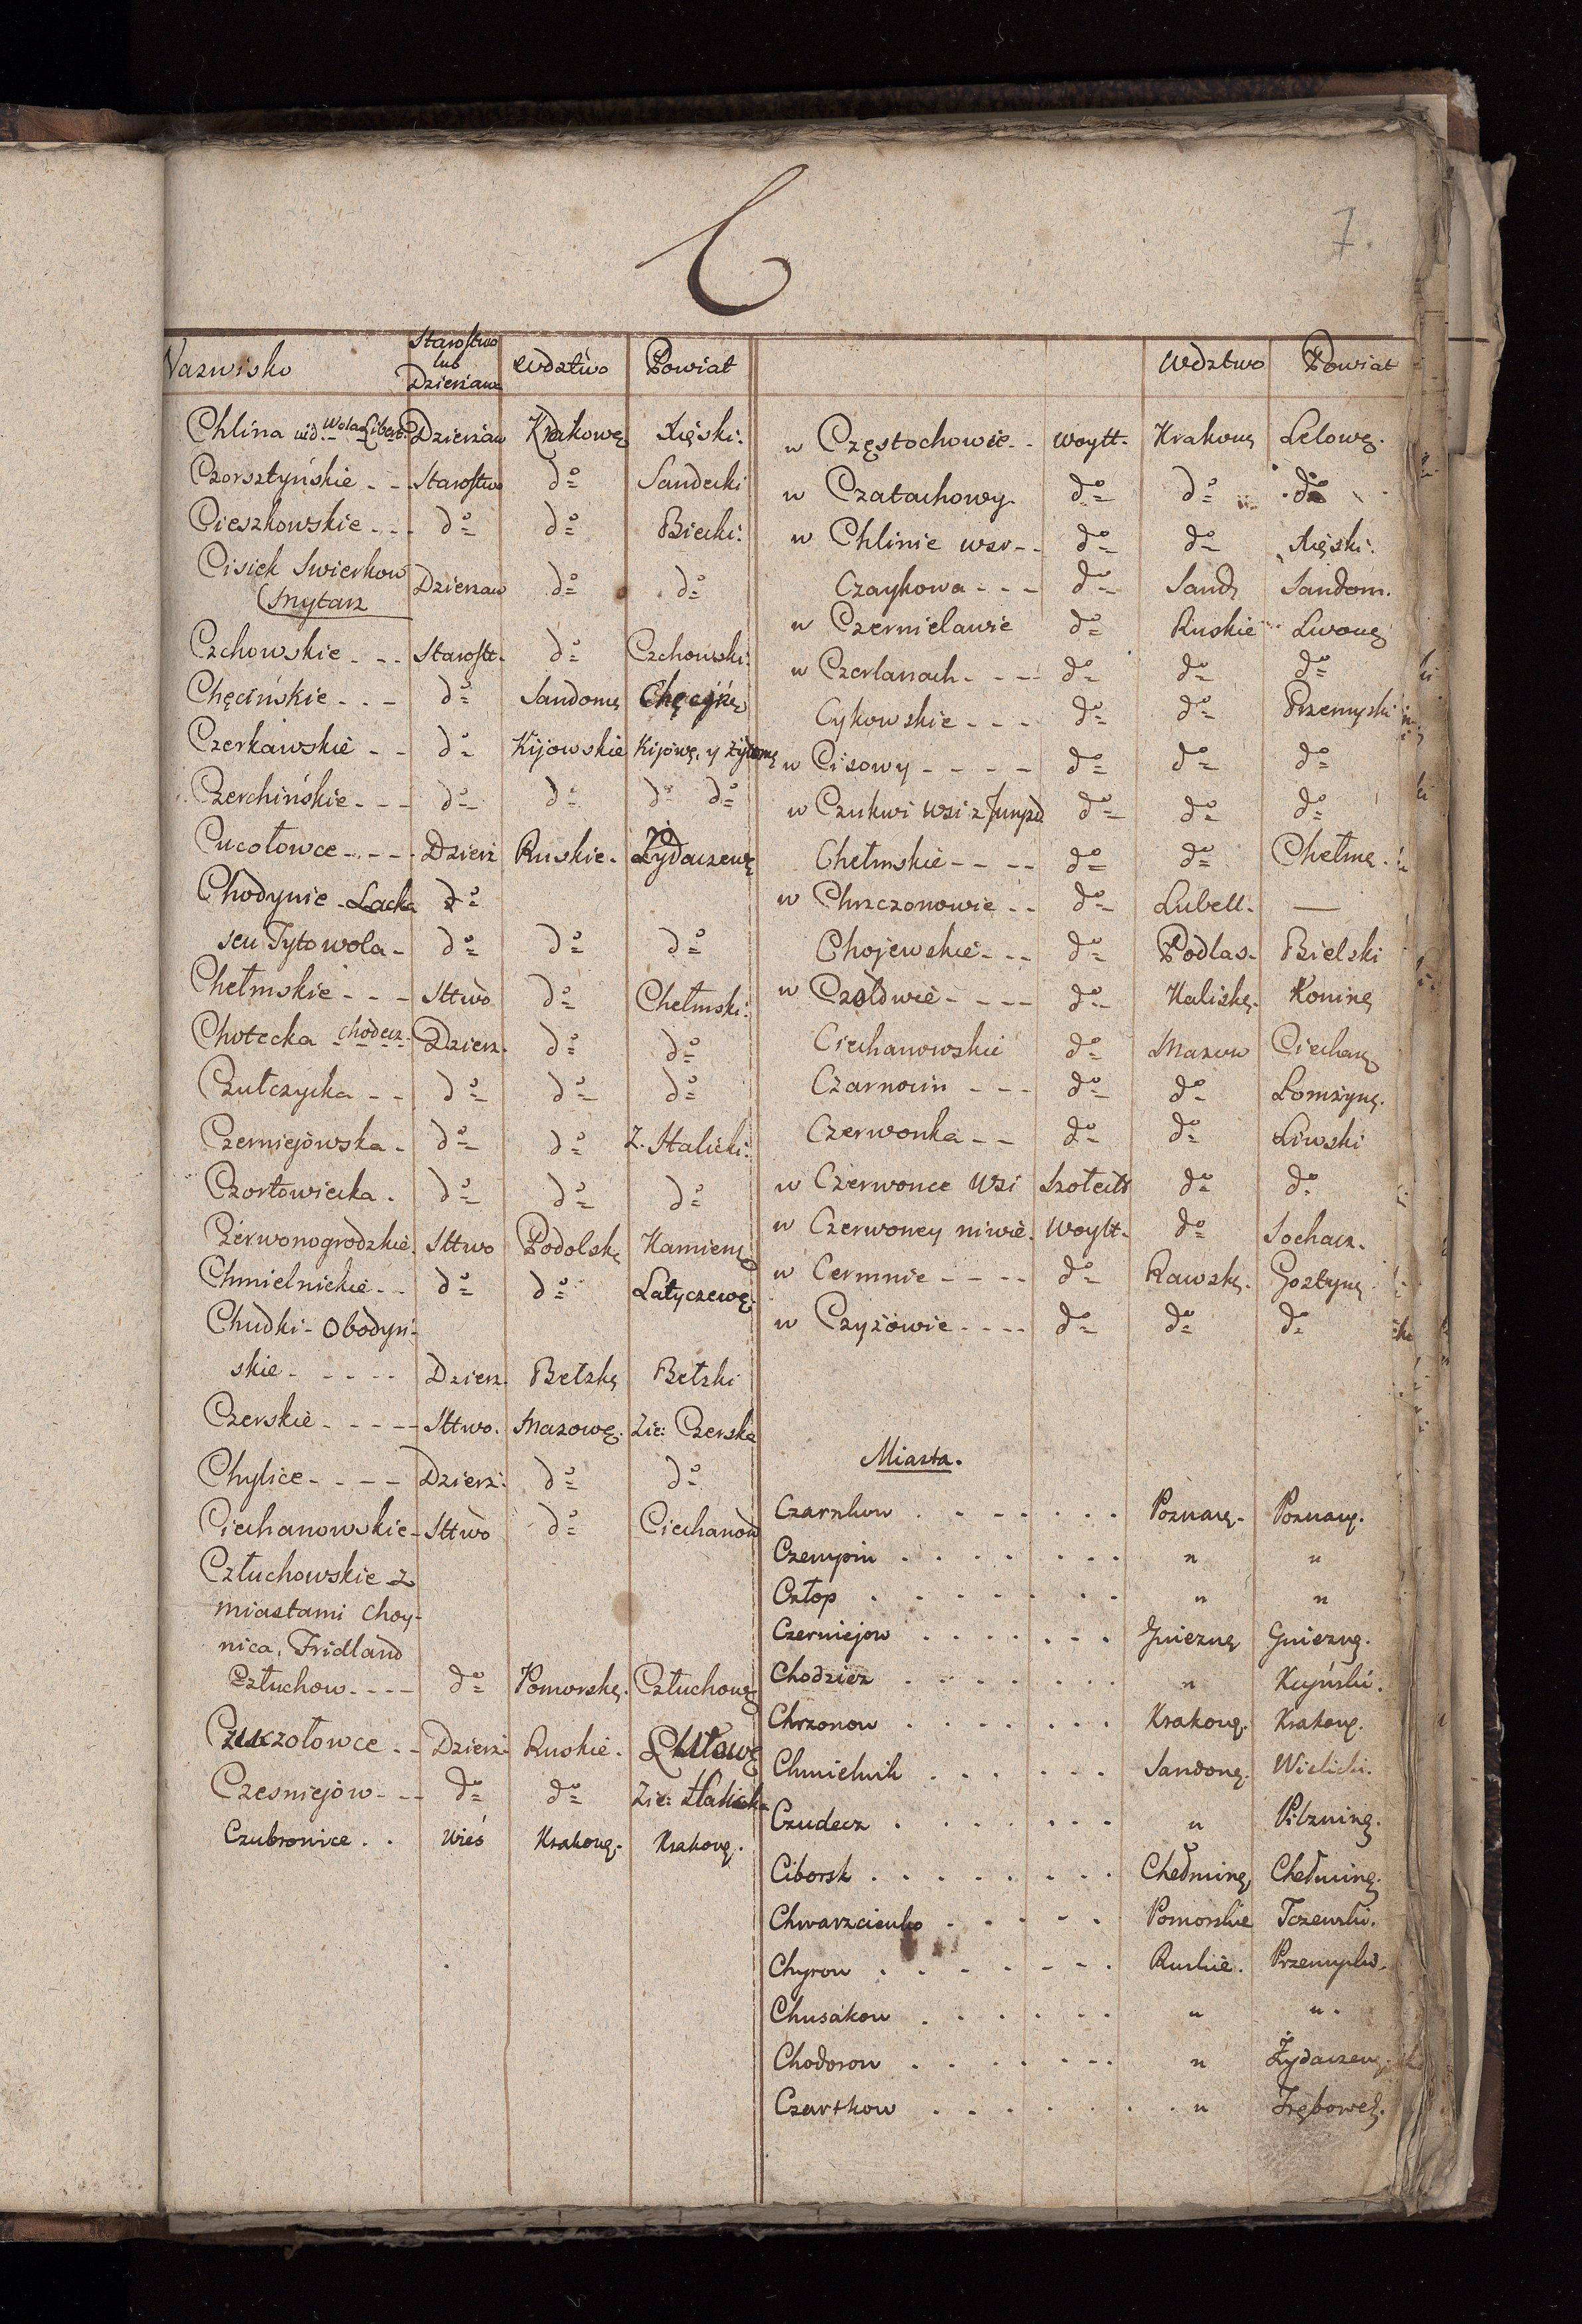 C
7.
Nazwisko Starostwo lub Dzierżaw Wdztwo Powiat
Chlina vid. Wola Libert. Dzierżaw Krakowę Xięski:
Czorsztyńskie - - Starostwo do Sandecki
Cieszkowskie - - - do do Biecki:
Cisiek Swierkow
Smytarz Dzierzaw do do
Czchowskie - - - Starost. do Czchowski:
Chęcińskie - - - do Sandomę Chęcińę
Czerkawskie - - do Kijowskie Kijowę. y Żytomę
Czerchińskie - - - do do do do
Cucołowce - - - - Dzierż Ruskie - Żydaczewę
Chodynie - Lacka do
seu Tytowola - do do do
Chełmskie - - - Sttwo do Chełmski:
Chotecka chodecz - Dzierz. do do
Czułczycka - - do do do
Czerniejówska - do do Z. Halicki:
Czortowiecka . do do do
Czerwonogrodzkie. Sttwo Podolskę Kamienę
Chmielnickie - - do do Latyczewę.
Chudki - Obodyń-
skie - - - - - Dzierz. Bełzkę Bełzki
Czerskie - - - - - Sttwo. Mazowę. Zie: Czerska
Chylice - - - - Dzierz: do do
Ciechanowskie - Sttwo do Ciechanów
Człuchowskie z
miastami Choy-
nica, Fridland
Człuchow - - - - do Pomorskę. Człuchowę
Czuczołowce - - Dzierż Ruskie.
Czesniejów - - - do do Zie: Halicka
Czubronice . . wieś Krakowę. Krakowę.
Wdztwo Powiat
w Częstochowie - - woytt. Krakowę Lelowę.
w Czatachowy. do do do
w Chlinie wsi - - do do Xięski:
Czaykowa - - - do Sandę Sandom.
w Czernielawie do Ruskie Lwowę
w Czerlanach - - - do do do
Cykowskie - - - do do Przemyski
w Cisowy - - - - do do do
w Czukwi wsi z do do do
Chełmskie - - - - do do Chełmę.
w Chrzczonowie - - do Lubell. —
Chojewskie - - - do Podlas. Bielski
w Czołdwie - - - - do Kaliskę. Koninę
Ciechanowskie do Mazow Ciechanę
Czarnocin - - - do do Łomżynę.
Czerwonka - - do do Liwski
w Czerwonce wsi Szołeckt do do
w Czerwoney niwie. woytt. do Sochacz.
w Cermnie - - - - do Rawskę. Gostynę
w Czyżowie - - - - do do do
Miasta.
Czarnkow . . . . . . . Poznanę. Poznanę.
Czempin . . . . . . . " "
Człop . . . . . . . " "
Czerniejow . . . . . . . Gnieznę Gnieznę.
Chodziez . . . . . . . " Kcyński.
Chrzonow . . . . . . . Krakowę. Krakowę.
Chmielnik . . . . . . Sandomę. Wislicki.
Czudecz . . . . . . . " Pilzninę.
Ciborsk . . . . . . . . Chełminę Chełminę.
Chwarzcienko . . . . . Pomorskie Tczewski.
Chyrow . . . . . . . Ruskie. Przemyski.
Chusakow . . . . . . " " .
Chodorow . . . . . . . " Żydaczewę.
Czartkow . . . . . . . . " Tręboweł.